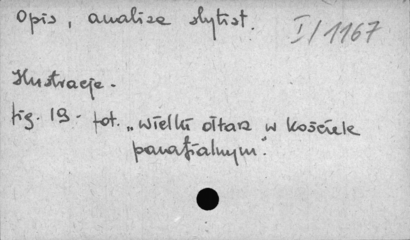 Opis, analiza stylist.
I/1167
Ilustracje.
fig. 19. fot. „Wielki ołtarz w Kościele
parafialnym".